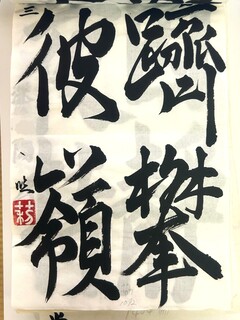 躋攀
彼嶺
三